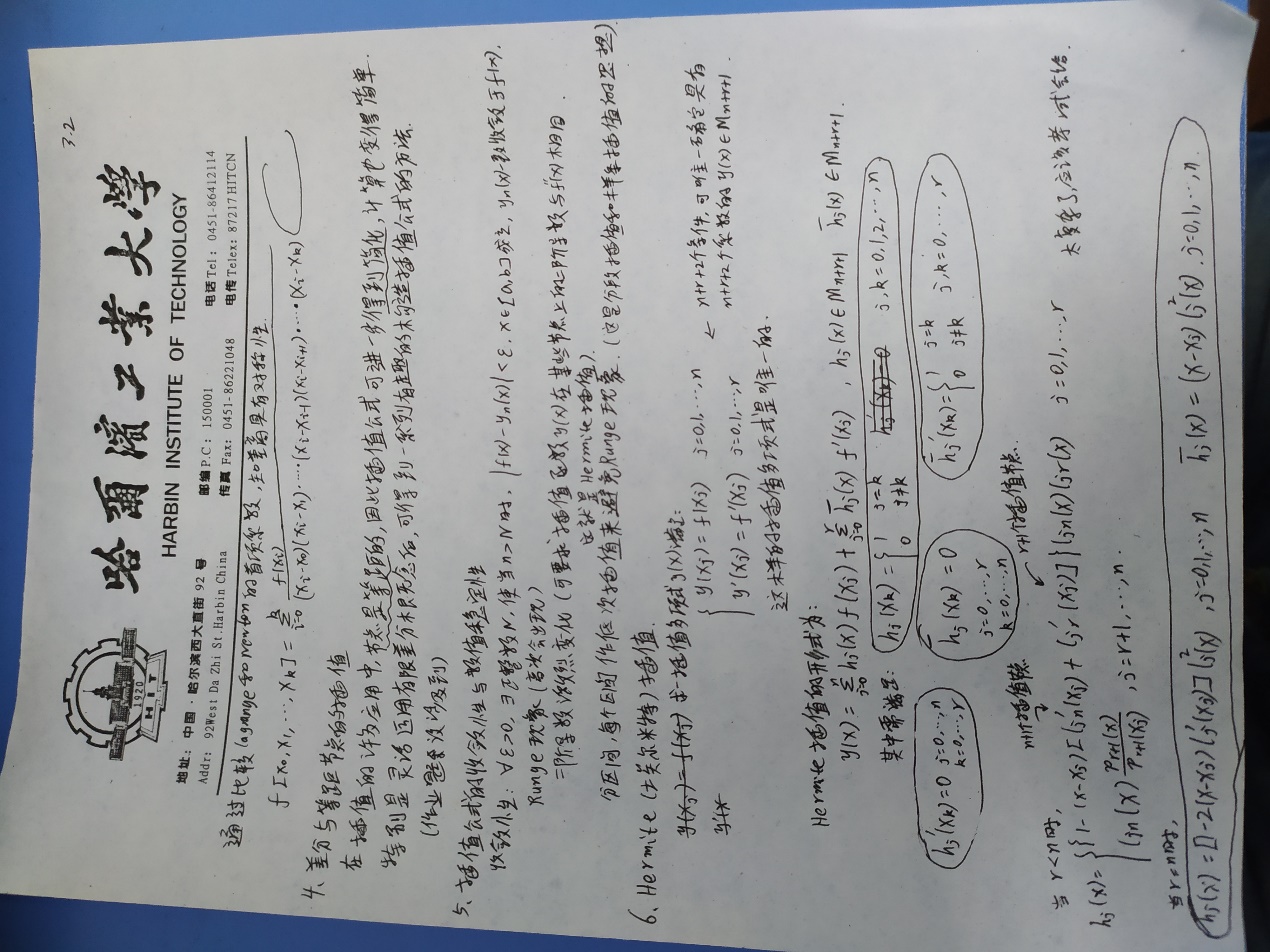 3.2
哈爾濱工業大學
HARBIN INSTITUTE OF TECHNOLOGY
1920
HIT
地址：中国·哈尔滨西大直街 92 号 邮编 P.C: 150001 电话 Tel: 0451-86412114
Addr: 92West Da Zhi St.Harbin China 传真 Fax: 0451-86221048 电传 Telex: 87217HITCN
通过比较 lagrange 和 newton 的首项系数, 知差商具有对称性.
f[x₀, x₁, ⋯, xₖ] = Σᵢ₌₀ᵏ f(xᵢ) / (xᵢ-x₀)(xᵢ-x₁)⋯(xᵢ-xᵢ₋₁)(xᵢ-xᵢ₊₁)⋯(xᵢ-xₖ)
4、差分与等距节点的插值
在插值的许多应用中, 节点是等距的, 因此插值公式可进一步得到简化, 计算也变得简单.
特别是灵活运用有限差分概念后, 可得到一系列有趣的构造插值公式的方法.
(作业题里没涉及到)
5、插值公式的收敛性与数值稳定性
收敛性: ∀ε>0, ∃正整数N, 使当n>N时, |f(x)-yₙ(x)|<ε, x∈[a,b]成立, yₙ(x)一致收敛于f(x).
Runge现象 (高次会出现)
一阶导数次剧烈变化 (可要求插值函数y(x)在某些节点上的一阶导数与f(x)相同
这就是Hermite插值).
分区间每个区间作低次插值来避免Runge现象. (这是分段插值和样条插值的思想)
6、Hermite (埃尔米特) 插值.
y(xⱼ) = f(xⱼ) 求一插值多项式y(x)满足:
y(x
{ y(xⱼ) = f(xⱼ) j=0,1,⋯,n
y'(xⱼ) = f'(xⱼ) j=0,1,⋯,r
← n+r+2个条件, 可唯一确定具有
n+r+2个系数的y(x)∈Mₙ₊ᵣ₊₁.
这样的插值多项式是唯一的.
Hermite插值的形式为:
y(x) = Σⱼ₌₀ⁿ hⱼ(x) f(xⱼ) + Σⱼ₌₀ʳ h̄ⱼ(x) f'(xⱼ), hⱼ(x)∈Mₙ₊ᵣ₊₁ h̄ⱼ(x)∈Mₙ₊ᵣ₊₁.
其中需满足: hⱼ(xₖ) = { 1 j=k 0 j≠k hⱼ'(xₖ)=0 j,k=0,1,2,⋯,n
hⱼ'(xₖ)=0 j=0,⋯,n k=0,⋯,r
h̄ⱼ(xₖ)=0 j=0,⋯,r k=0,⋯,n
h̄ⱼ'(xₖ) = { 1 j=k 0 j≠k j,k=0,⋯,r
n+1个插值节点 r+1个插值节点.
当r<n时,
hⱼ(x) = { {1-(x-xⱼ)[lⱼₙ'(xⱼ)+lⱼᵣ'(xⱼ)]} lⱼₙ(x) lⱼᵣ(x) j=0,1,⋯,r
lⱼₙ(x) Pᵣ₊₁(x)/Pᵣ₊₁(xⱼ), j=r+1,⋯,n.
太复杂了,应该考试会给.
当r=n时,
hⱼ(x) = [1-2(x-xⱼ)lⱼ'(xⱼ)] lⱼ²(x), j=0,1,⋯,n h̄ⱼ(x) = (x-xⱼ) lⱼ²(x), j=0,1,⋯,n.